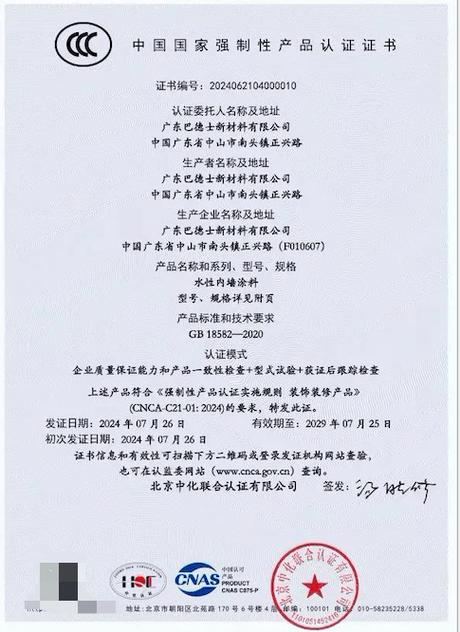 中国国家强制性产品认证证书
证书编号：2024062104000010
认证委托人名称及地址
广东巴德士新材料有限公司
中国广东省中山市南头镇正兴路
生产者名称及地址
广东巴德士新材料有限公司
中国广东省中山市南头镇正兴路
生产企业名称及地址
广东巴德士新材料有限公司
中国广东省中山市南头镇正兴路（F010607）
产品名称和系列、型号、规格
水性内墙涂料
型号、规格详见附页
产品标准和技术要求
GB 18582—2020
认证模式
企业质量保证能力和产品一致性检查+型式试验+获证后跟踪检查
上述产品符合《强制性产品认证实施规则 装饰装修产品》
(CNCA-C21-01: 2024)的要求，特发此证。
发证日期：2024 年 07 月 26 日 有效期至：2029 年 07 月 25 日
初次发证日期：2024 年 07 月 26 日
证书信息和有效性可扫描下方二维码或登录发证机构网站查验，
也可在认监委网站（www.cnca.gov.cn）查询。
北京中化联合认证有限公司 签发：
CNAS
中国认可
产品
PRODUCT
CNAS C075-P
北京中化联合认证有限公司
地址:北京市朝阳区北苑路 170 号 6 号楼 4 层 邮编：100101 电话：010-58235228/5338